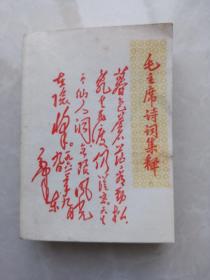 毛主席诗词集释
暮色苍茫看劲松
乱云飞渡仍从容天生
一个仙人洞无限风光
在险峰